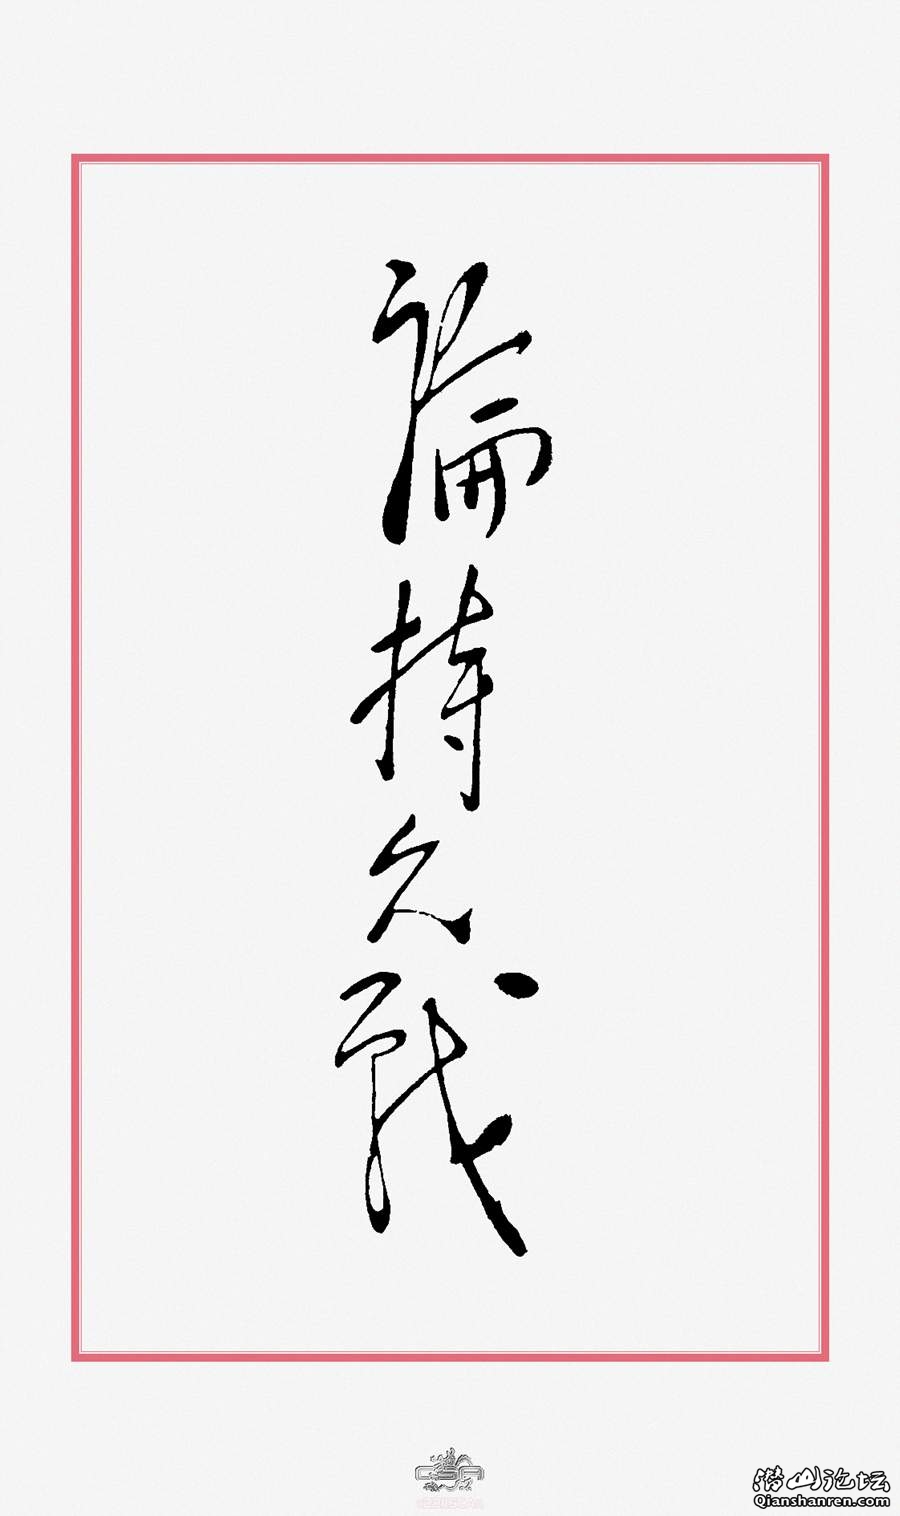 論持久戰
CSA
潜山论坛
Qianshanren.com